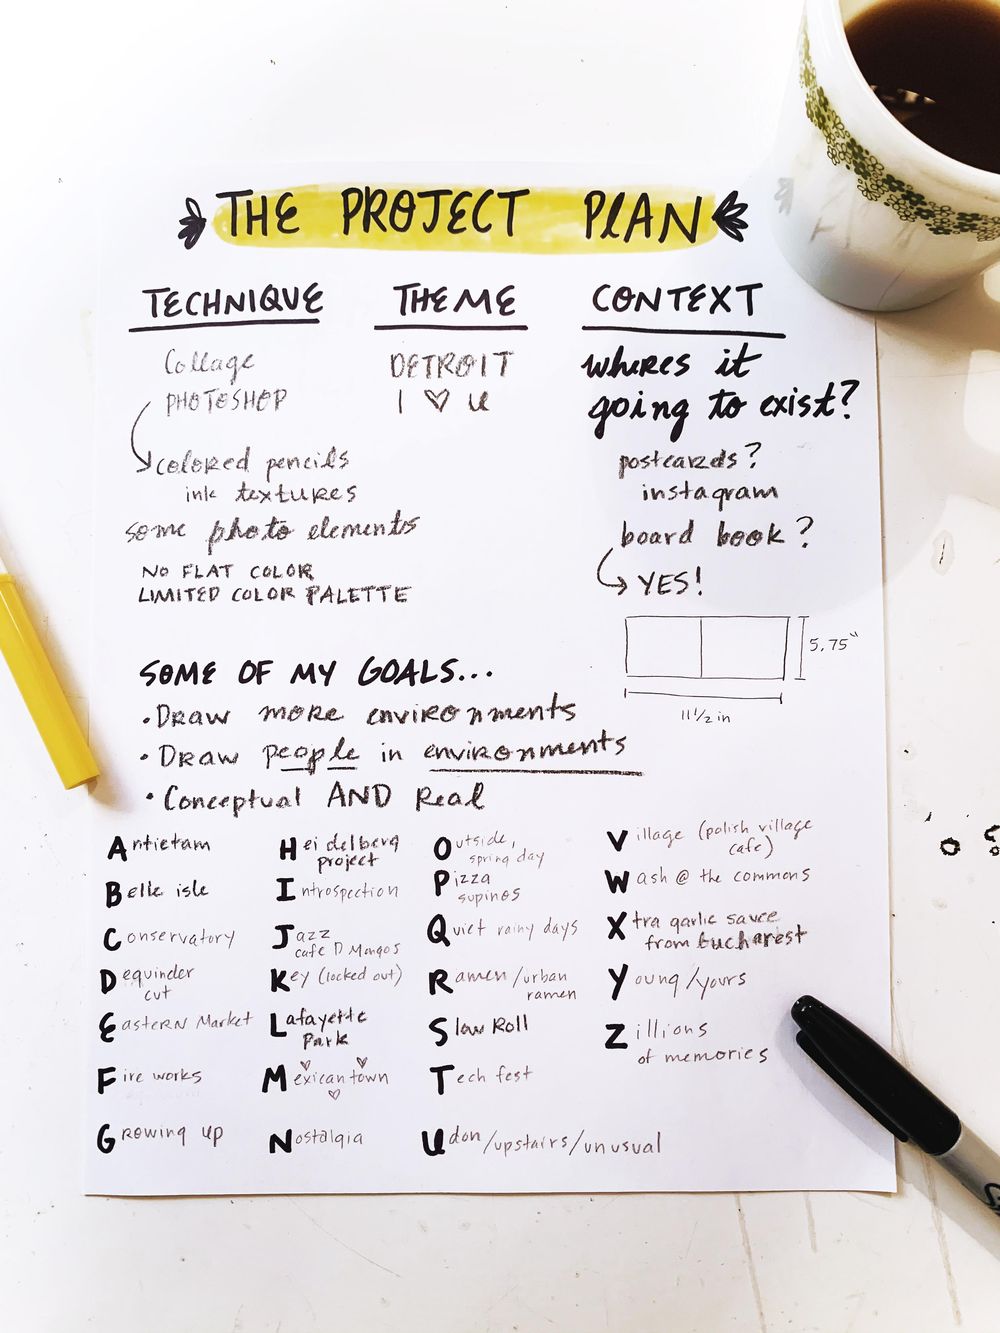 THE PROJECT PLAN
TECHNIQUE
Collage
PHOTOSHOP
colored pencils
ink textures
some photo elements
NO FLAT COLOR
LIMITED COLOR PALETTE
THEME
DETROIT
I ♡ U
CONTEXT
wheres it
going to exist?
postcards?
instagram
board book?
YES!
5.75"
11 1/2 in
SOME OF MY GOALS...
• Draw more environments
• Draw people in environments
• Conceptual AND Real
Antietam
Belle isle
Conservatory
Dequinder
cut
Eastern Market
Fire works
Growing up
Heidelberg
project
Introspection
Jazz
cafe D Mongos
Key (locked out)
Lafayette
Park
Mexican town
Nostalgia
Outside,
spring day
Pizza
supinos
Quiet rainy days
Ramen/urban
ramen
Slow Roll
Tech fest
Udon/upstairs/unusual
Village (polish village
cafe)
Wash @ the commons
Xtra garlic sauce
from Bucharest
Young/yours
Zillions
of memories